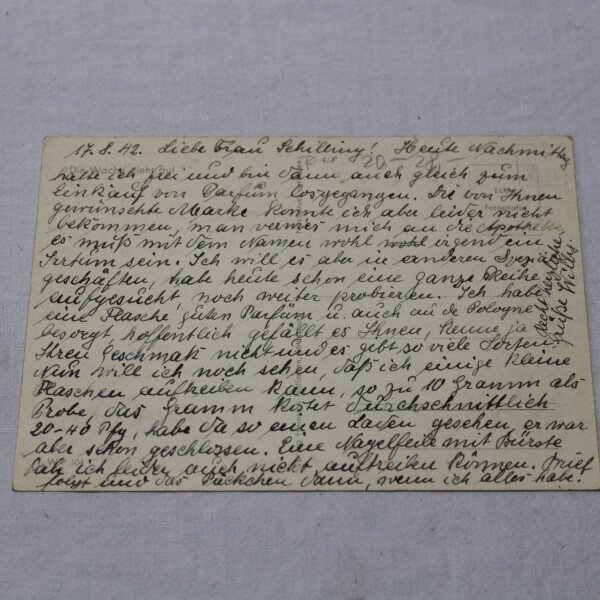 17.8.42. Liebe Frau Schilling! Heute Nachmittag
hatte ich frei und bin dann auch gleich zum
Einkauf von Parfüm losgegangen. Die von Ihnen
gewünschte Marke konnte ich aber leider nicht
bekommen, man verwies mich an die Apotheken,
es muß mit dem Namen wohl wohl irgend ein
Irrtum sein. Ich will es aber in anderen Spezial
geschäften, habe heute schon eine ganze Reihe
aufgesucht, noch weiter probieren. Ich habe
eine Flasche guten Parfüm u. auch au de Pologne
besorgt, hoffentlich gefällt es Ihnen, kenne ja
Ihren Geschmak nicht und es gibt so viele Sorten
Nun will ich noch sehen, daß ich einige kleine
Flaschen auftreiben kann, so zu 10 Gramm als
Probe, das Gramm kostet durchschnittlich
20-40 Pfg, habe da so einen Laden gesehen, er war
aber schon geschlossen. Eine Nagelfeile mit Bürste
hab ich leider auch nicht auftreiben können. Brief
folgt und das Päckchen dann, wenn ich alles habe.
Recht herzliche
Grüße Willy.
Die Wache zieht
Echte
Fotografie
20-28-